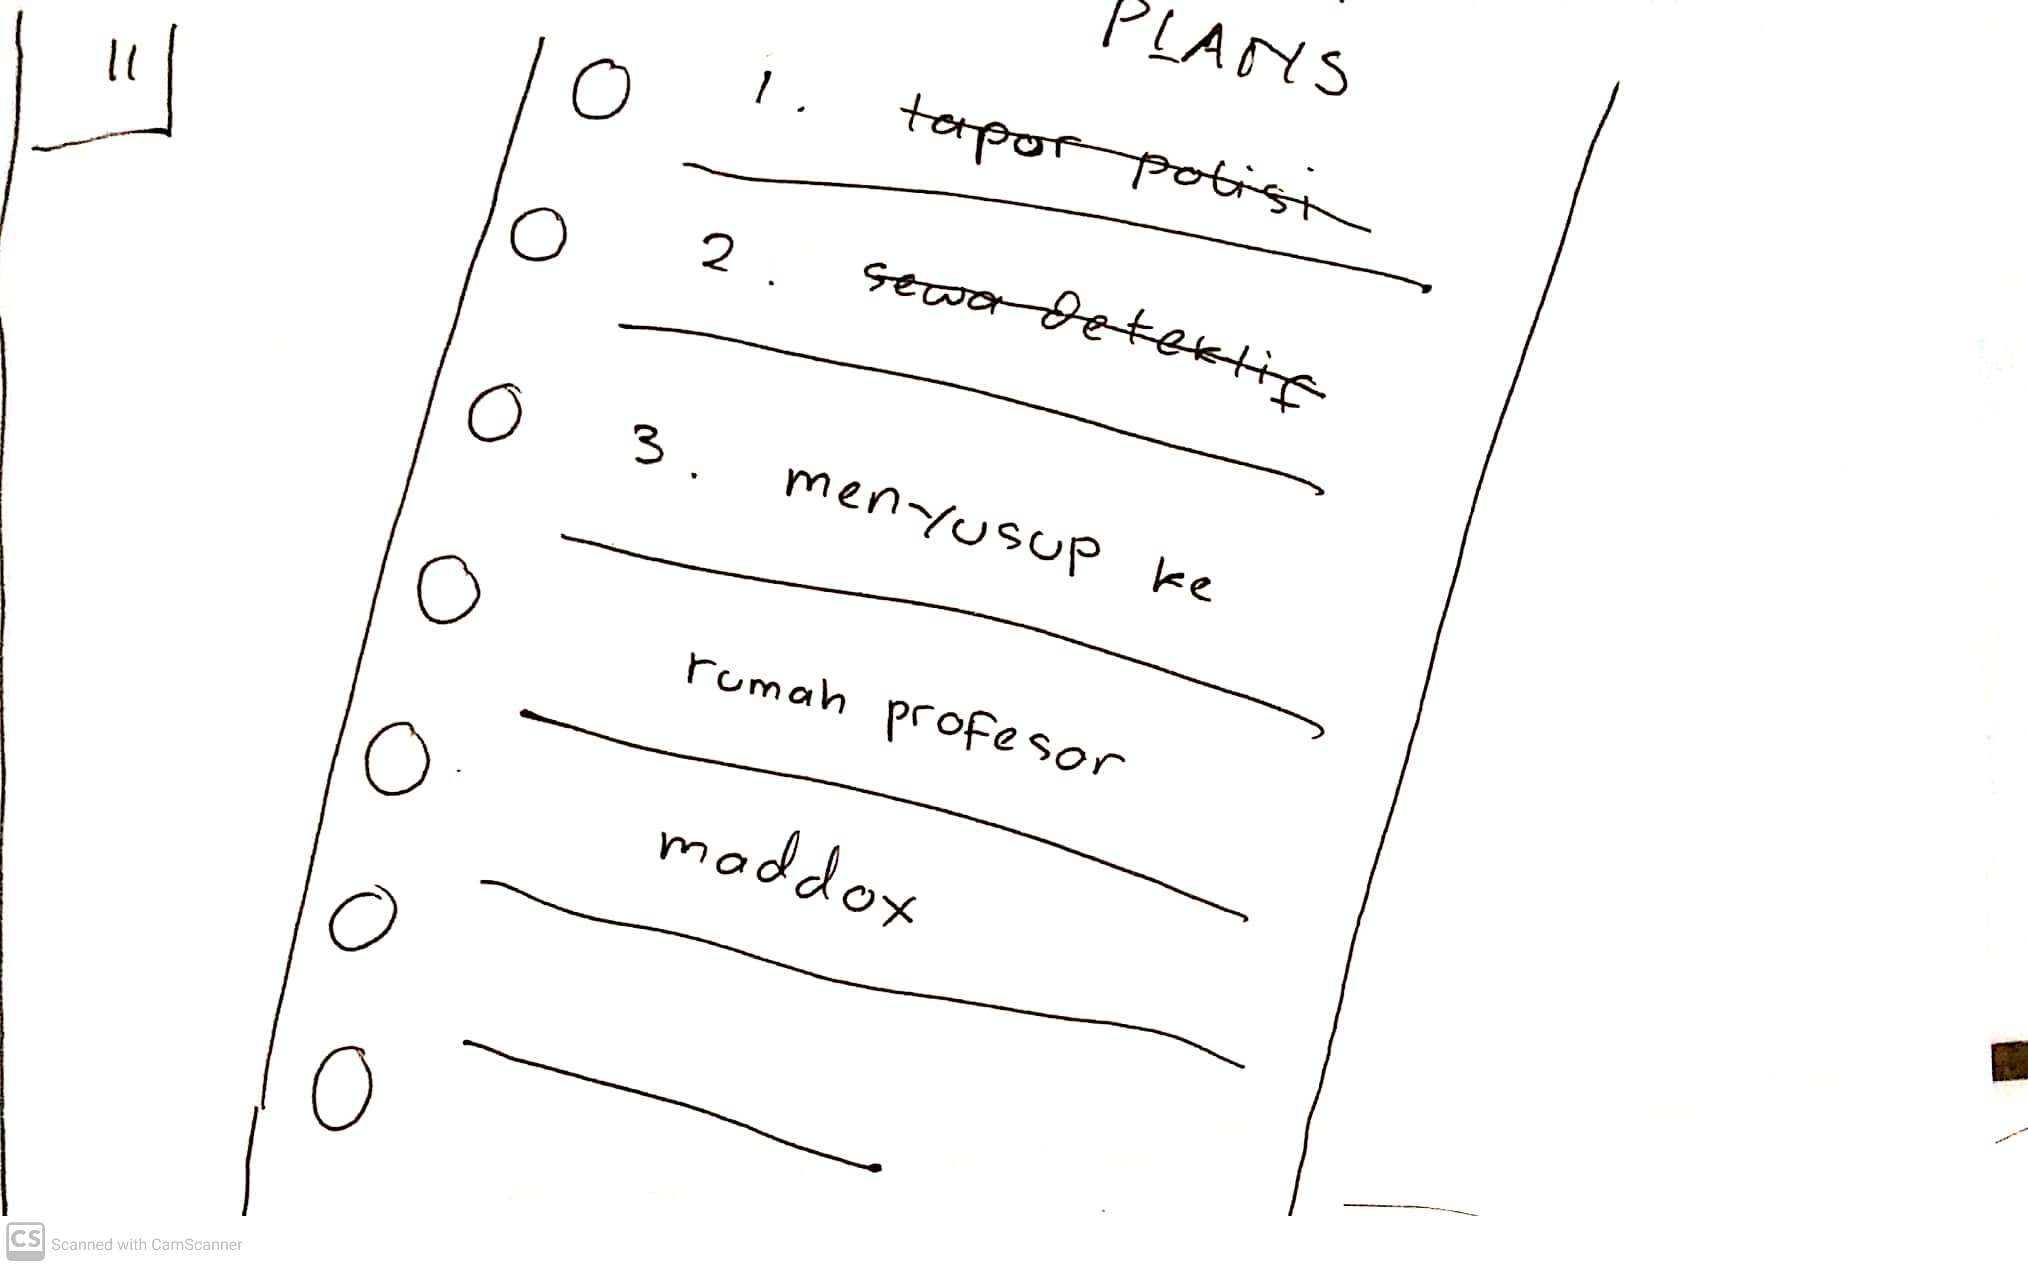 11
PLANS
1. ~~lapor polisi~~
2. ~~sewa detektif~~
3. menyusup ke
rumah profesor
maddox
CS Scanned with CamScanner